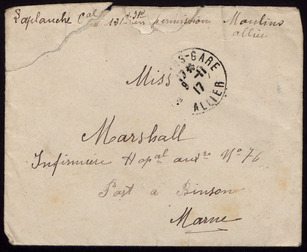 Laplanche Cal 13e en permission Moulins
Allier
S-GARE
9-11
17
ALLIER
Miss
Marshall
Infirmière Hopal auxre No 76
Port à Binson
Marne